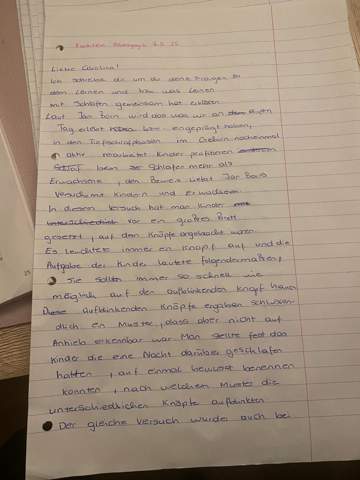 Liebe Carolina!
Ich schreibe dir um dir deine Fragen zu
dem Lernen und was Lernen
mit Schlafen gemeinsam hat erklären
Laut Jan Born wird das was wir an dem
Tag erlebt haben bzw. eingeprägt haben,
in den Tiefschlafphasen im Gehirn nocheinmal
aktiv Kinder profitieren
Schlaf beim Schlafen mehr als
Erwachsene, den Beweis liefert Jan Borns
Versuch mit Kindern und Erwachsenen
In diesem Versuch hat man Kinder
unterschiedlich vor ein großes Brett
gesetzt, auf dem Knöpfe angebracht waren.
Es leuchtete immer ein Knopf auf und die
Aufgabe der Kinder lautete folgendermaßen,
Sie sollten immer so schnell wie
möglich auf den aufblinkenden Knopf hauen
Diese aufblinkenden Knöpfe ergaben schluss
dlich ein Muster, dass aber nicht auf
Anhieb erkennbar war. Man stellte fest das
Kinder die eine Nacht darüber geschlafen
hatten, auf einmal bewusst benennen
konnten, nach welchem Muster die
unterschiedlichen Knöpfe aufblinkten
Der gleiche Versuch wurde auch bei